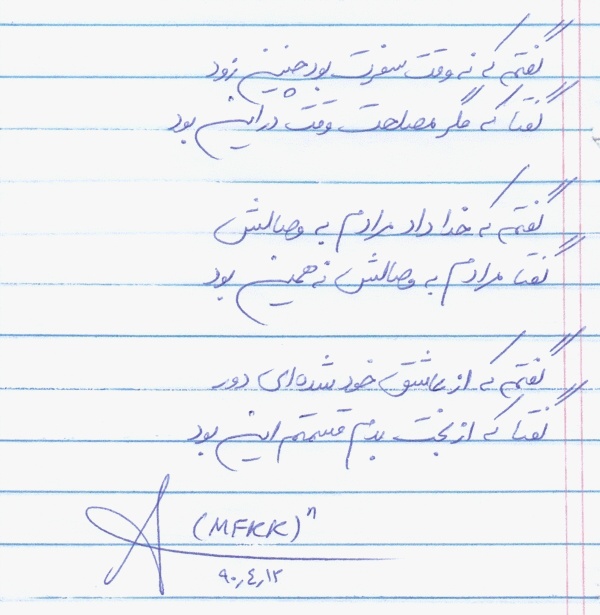 گفتم که نه وقت سفرت بود چنین زود
گفتا که مگر مصلحت وقت در این بود
گفتم که خدا داد مرادم به وصالش
گفتا مرادم به وصالش نه همین بود
گفتم که از عاشق خود شده‌ای دور
گفتا که از بخت بدم قسمتم این بود
(MFKK)ⁿ
۹۰٫۴٫۱۲